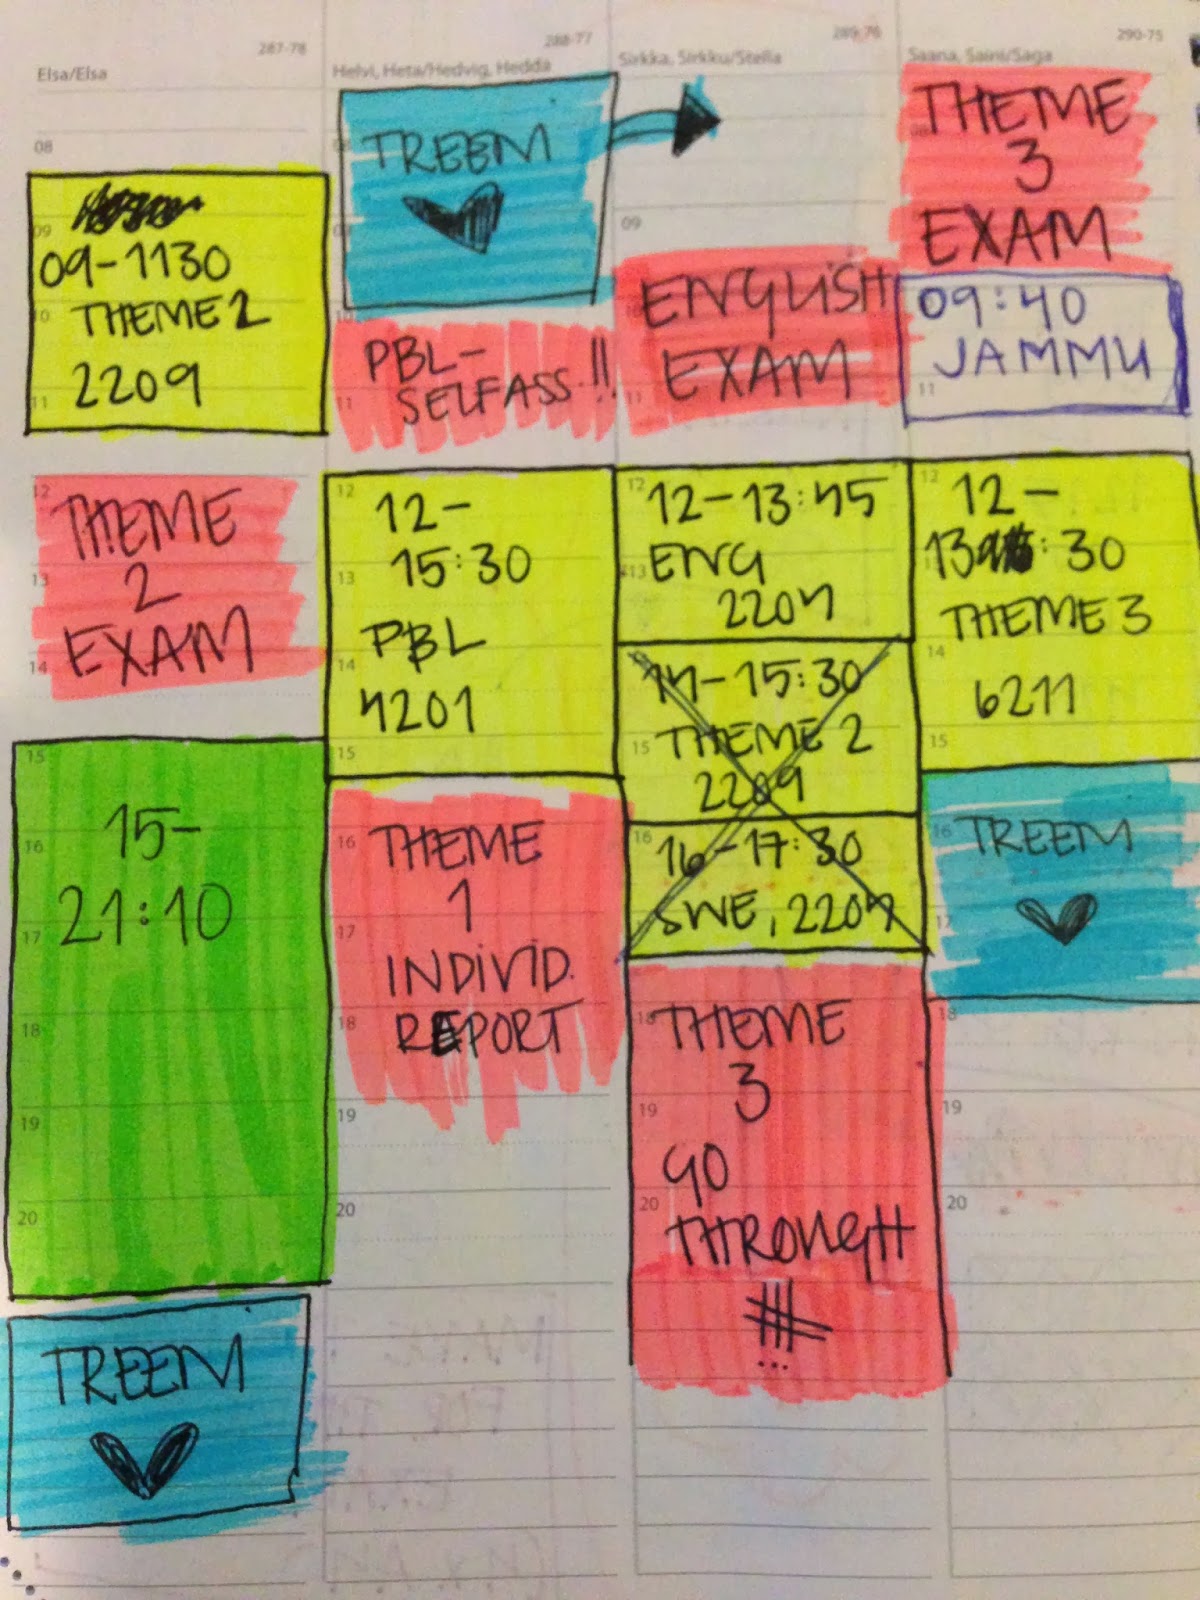 287-78
Elsa/Elsa
08
09
09-1130
THEME 2
10
2209
11
12
THEME
13
2
EXAM
14
15
15-
16
21:10
17
18
19
20
TREEM
288-77
Helvi, Heta/Hedvig, Hedda
TREEM
10
PBL-
SELFASS.!!
11
12
12-
15:30
13
PBL
14
4201
15
16
THEME
1
17
INDIVID.
REPORT
18
19
20
289-76
Sirkka, Sirkku/Stella
09
ENGLISH
EXAM
11
12
12-13:45
13
ENG
2204
14-15:30
15
THEME 2
2209
16
16-17:30
SWE, 2204
18
THEME
3
19
GO
20
THROUGH
...
290-75
Saana, Saini/Saga
THEME
3
EXAM
09:40
JAMMU
11
12
12-
13:30
THEME 3
14
6211
15
16
TREEM
17
18
19
20